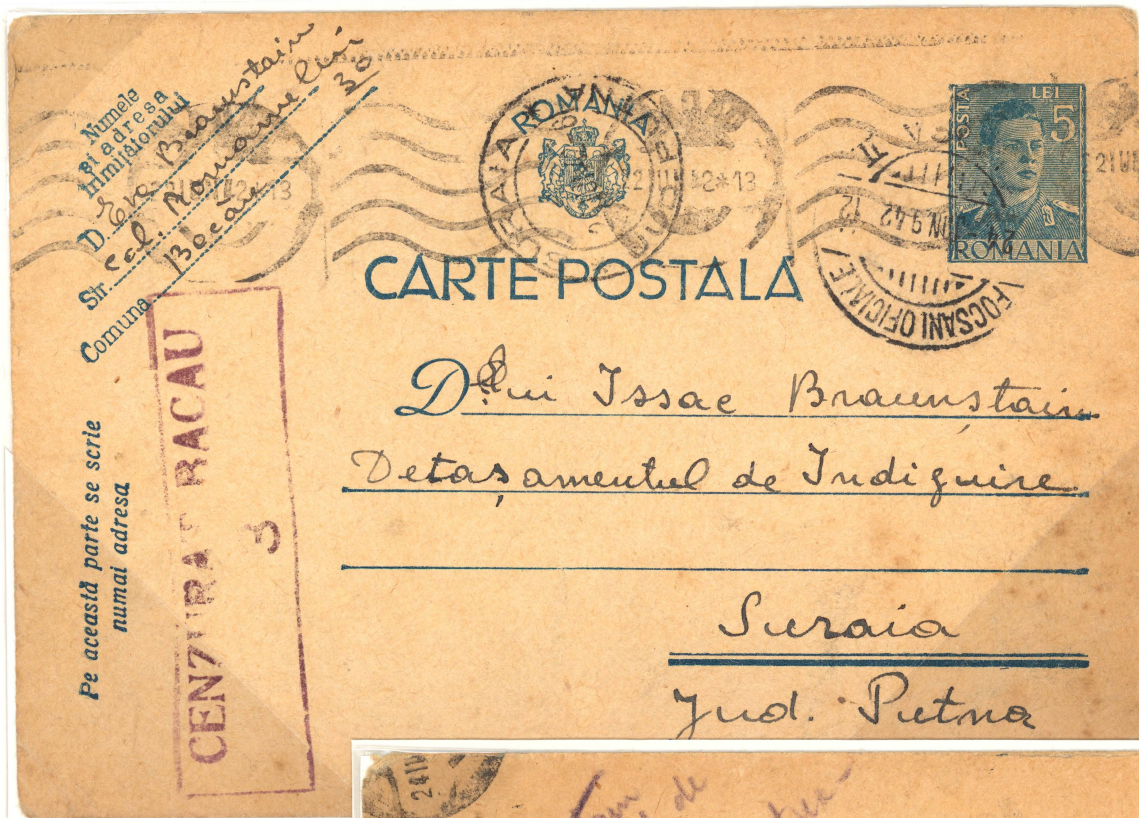 Numele
și adresa
trimițătorului
D. Eva Braunstain
Str. Cal. Romaneluni 30
Comuna Bacau
ROMANIA
SURAIA JUD. PUTNA
21 VI 42 * 13
POSTA LEI 5
ROMANIA
FOCSANI OFICIALE
24 IUN 942 12
CARTE POSTALĂ
CENZURAT BACAU
3
Pe această parte se scrie
numai adresa
D lui Issac Braunstain
Detașamentul de Indiguire
Suraia
Jud. Putna
24 IV
de